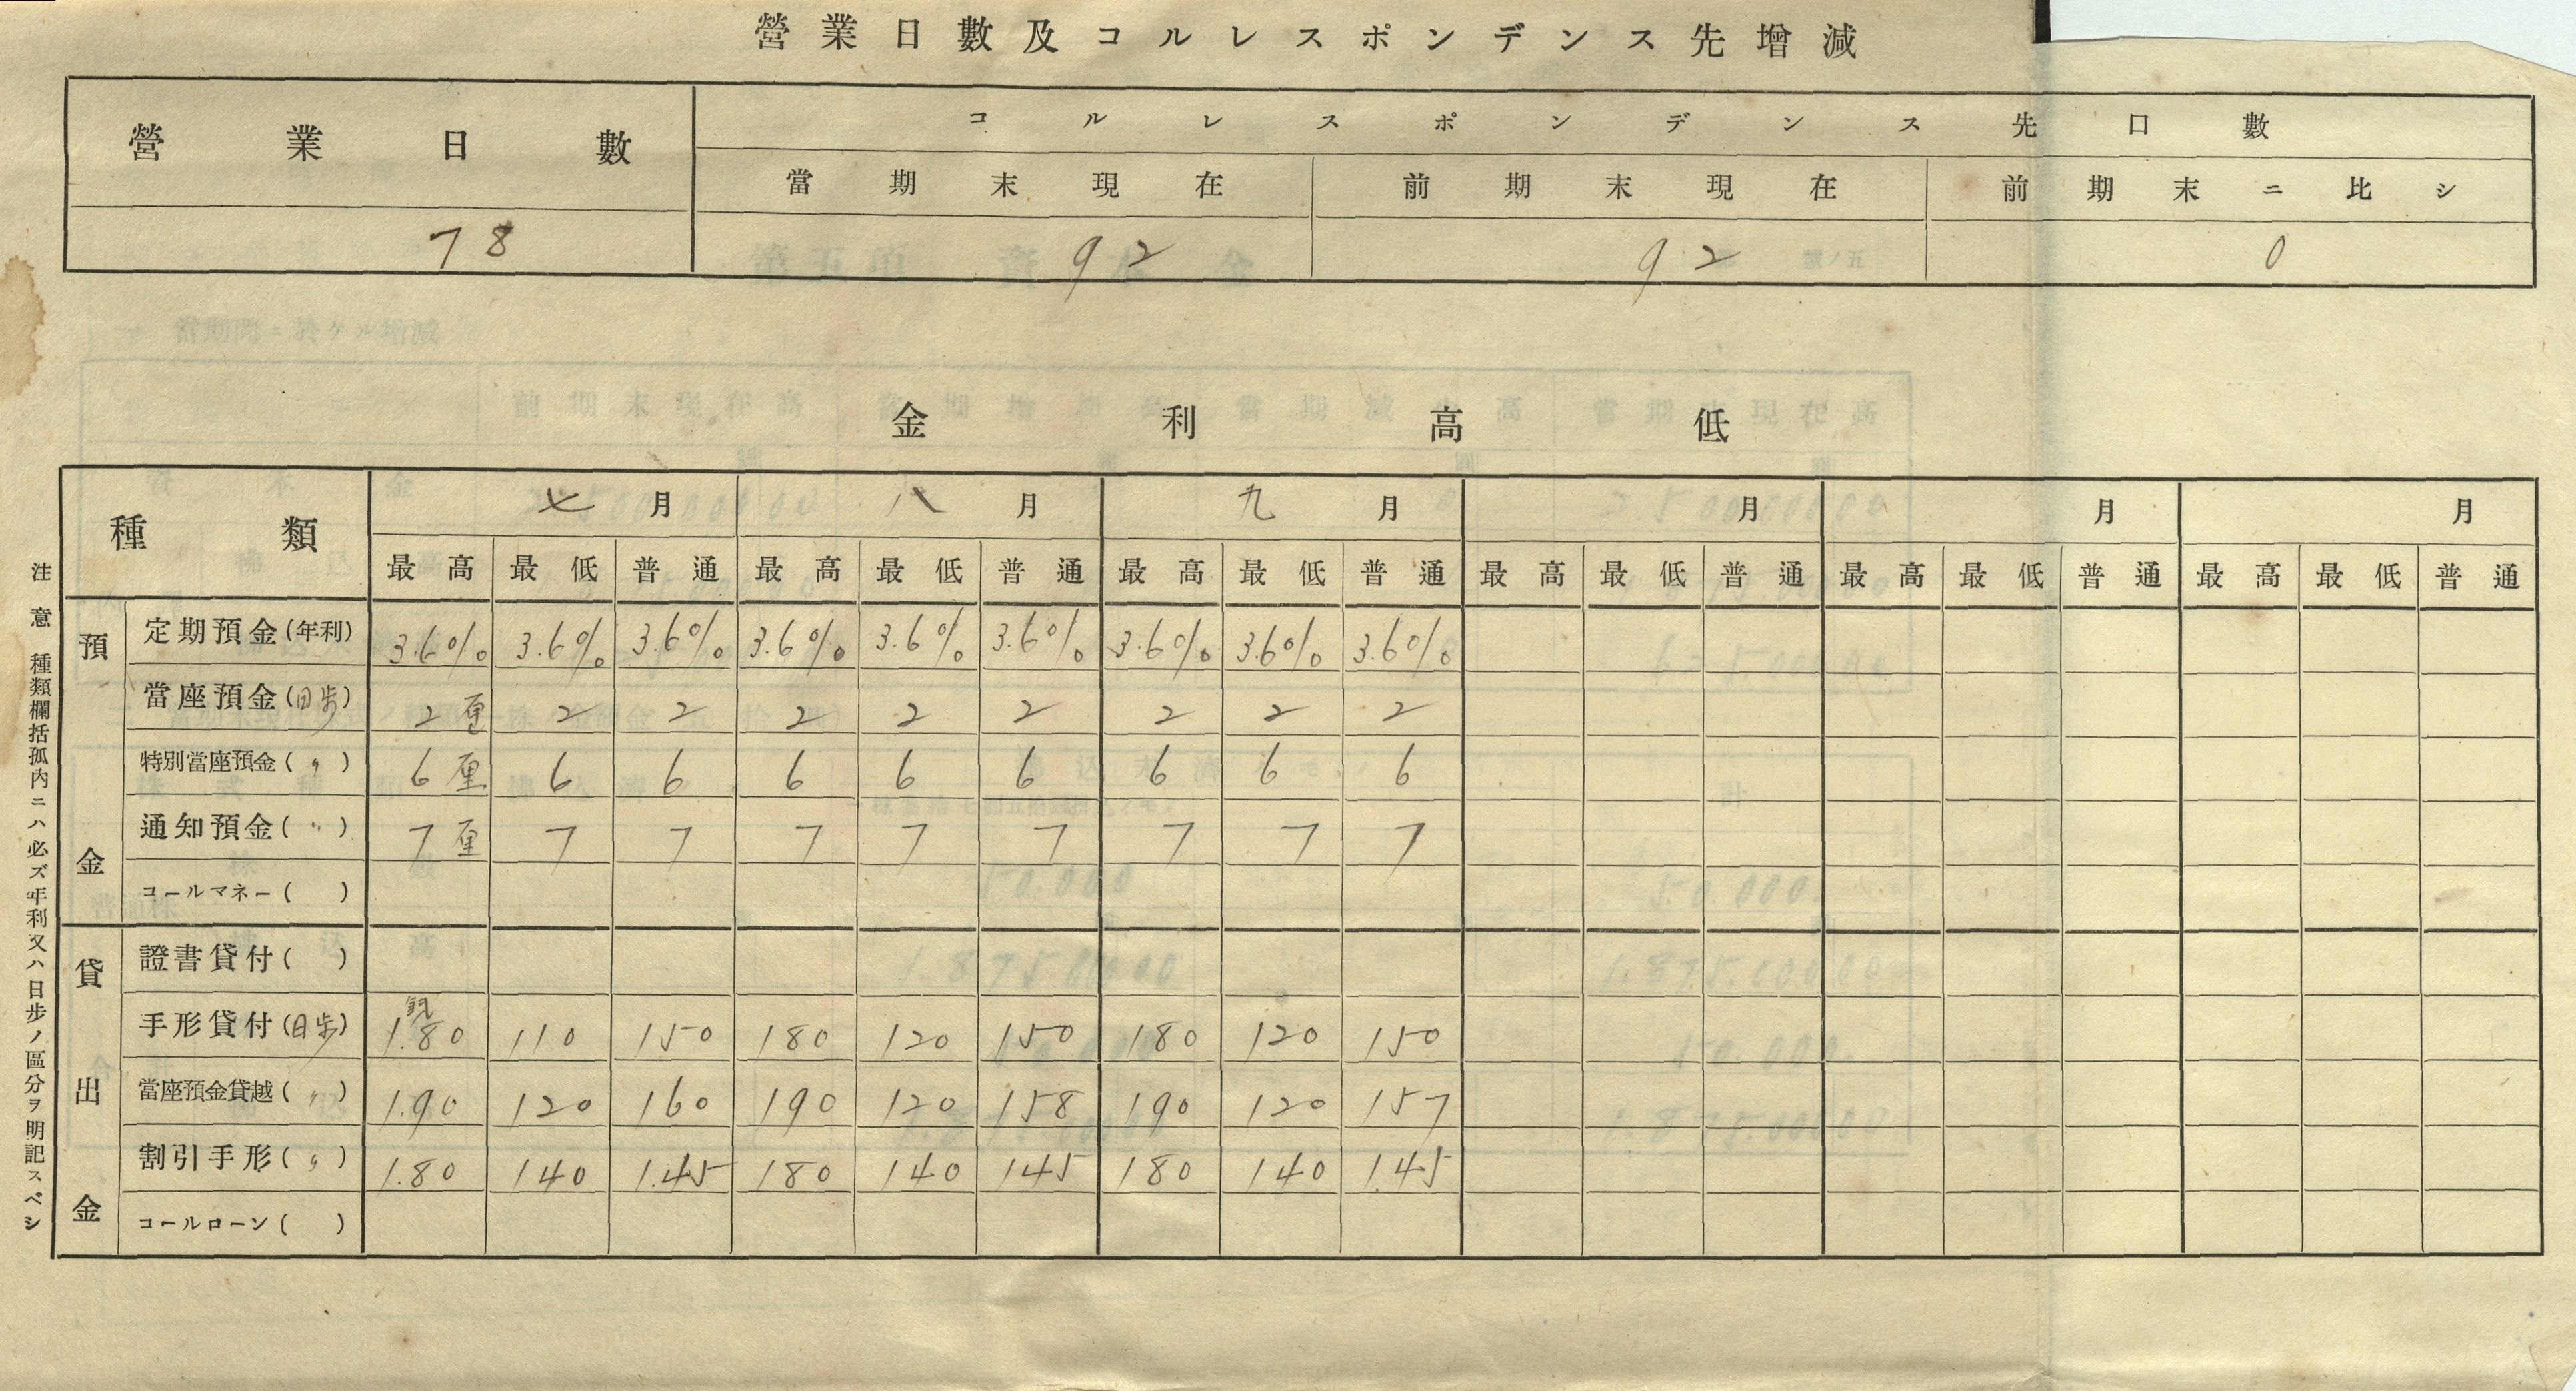 營業日數及コルレスポンデンス先增減
營業日數 コルレスポンデンス先口數
當期末現在 前期末現在 前期末ニ比シ
78 92 92 0
金利高低
種類 七月 八月 九月 月 月 月
最高 最低 普通 最高 最低 普通 最高 最低 普通 最高 最低 普通 最高 最低 普通 最高 最低 普通
預金
定期預金(年利) 3.6% 3.6% 3.6% 3.6% 3.6% 3.6% 3.6% 3.6% 3.6%
當座預金(日歩) 2厘 2 2 2 2 2 2 2 2
特別當座預金(〃) 6厘 6 6 6 6 6 6 6 6
通知預金(〃) 7厘 7 7 7 7 7 7 7 7
コールマネー( )
貸出金
證書貸付( )
手形貸付(日歩) 1.80 110 150 180 120 150 180 120 150
當座預金貸越(〃) 1.90 120 160 190 120 158 190 120 157
割引手形(〃) 1.80 140 1.45 180 140 145 180 140 1.45
コールローン( )
注意 種類欄括孤内ニハ必ズ年利又ハ日步ノ區分ヲ明記スベシ